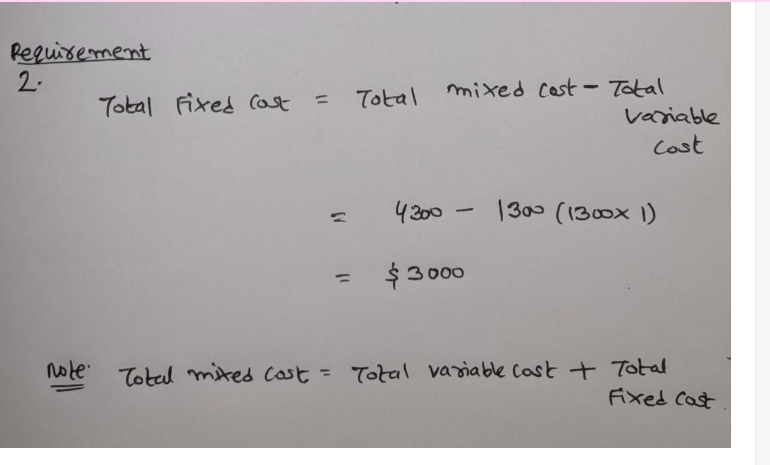 Requirement
2.
Total Fixed Cost = Total mixed cost - Total
variable
cost
= 4300 - 1300 (1300x 1)
= $ 3000
Note: Total mixed cost = Total variable cost + Total
Fixed Cost.